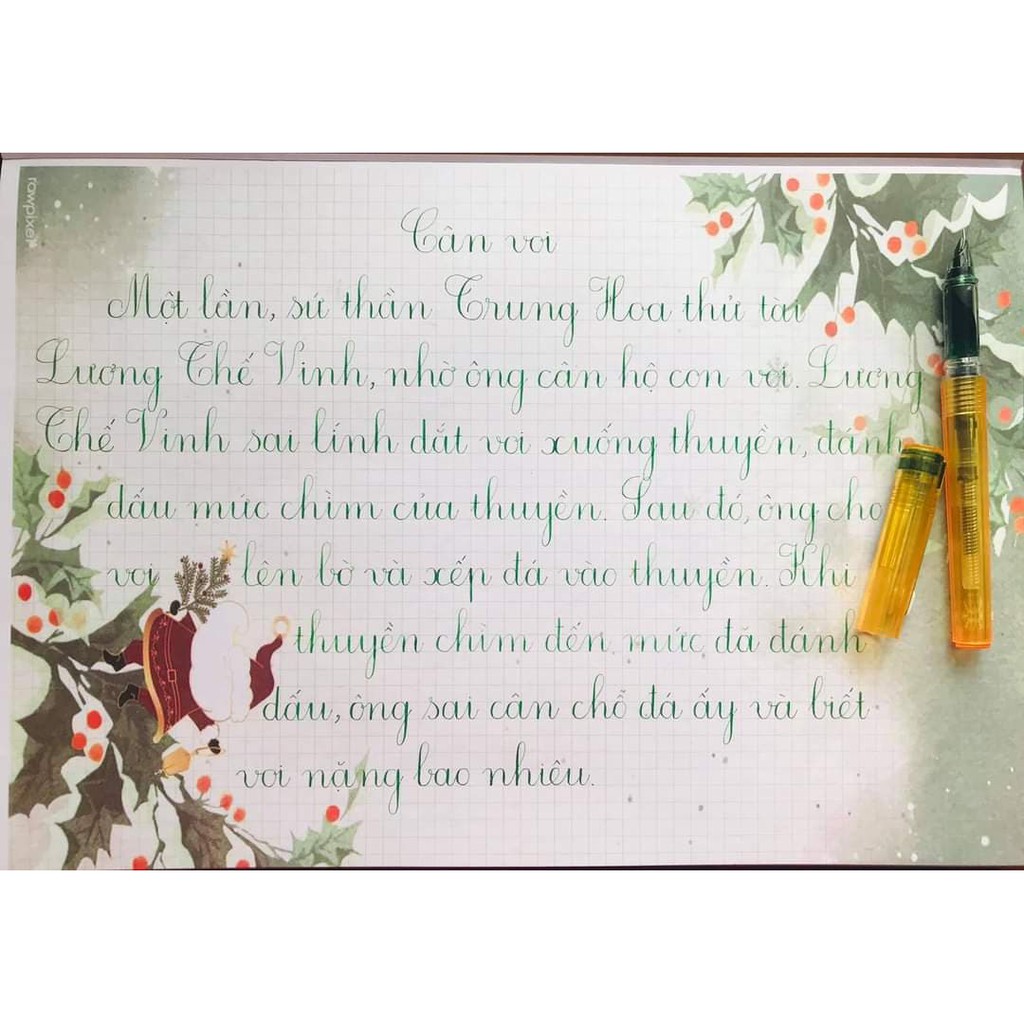 rawpixel
Cân voi
Một lần, sứ thần Trung Hoa thử tài
Lương Thế Vinh, nhờ ông cân hộ con voi. Lương
Thế Vinh sai lính dắt voi xuống thuyền, đánh
dấu mức chìm của thuyền. Sau đó, ông cho
voi lên bờ và xếp đá vào thuyền. Khi
thuyền chìm đến mức đã đánh
dấu, ông sai cân chỗ đá ấy và biết
voi nặng bao nhiêu.